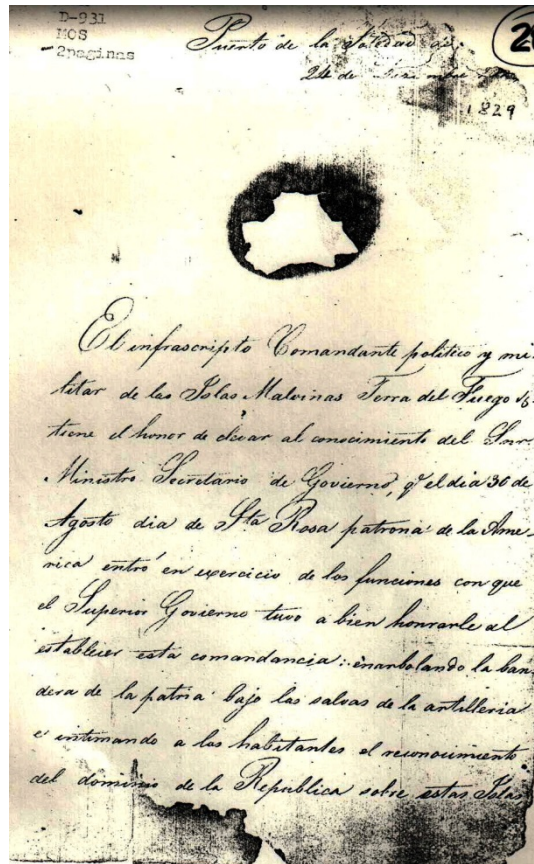 D-931
MOS
2paginas
2
Puerto de la Soledad
24 de
1829
El infrascripto Comandante politico y mi-
litar de las Islas Malvinas Terra del Fuego &
tiene el honor de elevar al conocimiento del Snr
Ministro Secretario de Govierno, qe el dia 30 de
Agosto dia de Sta Rosa patrona de la Ame-
rica entró en exercicio de las funciones con que
el Superior Govierno tuvo a bien honrarle al
establecer esta comandancia: enarbolando la ban-
dera de la patria bajo las salvas de la artilleria
e intimando a los habitantes el reconocimiento
del dominio de la Republica sobre estas Islas